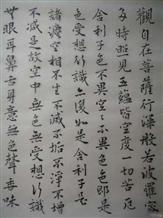 觀自在菩薩行深般若波羅蜜
多時照見五蘊皆空度一切苦厄
舍利子色不異空不異色色即是
色受想行識亦復如是舍利子是
諸法空相不生不滅不垢不淨不增
不減是故空中無色無受想行識
無眼耳鼻舌身意無色聲香味